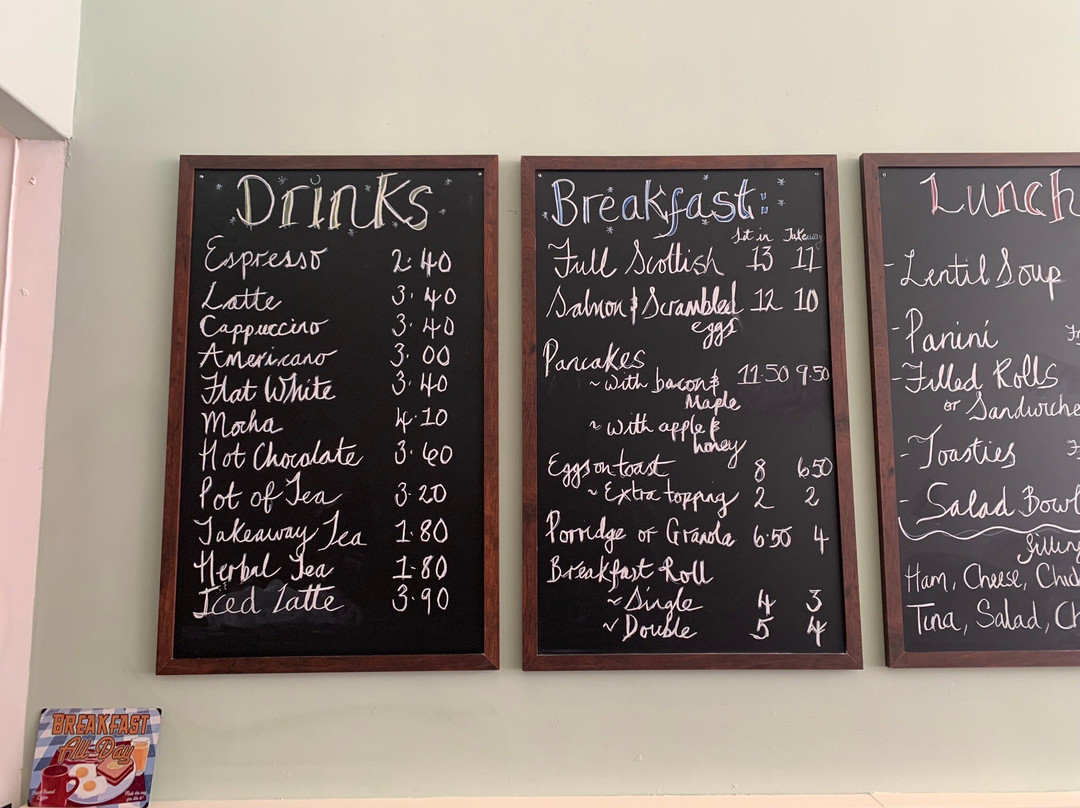 Drinks
Espresso 2.40
Latte 3.40
Cappuccino 3.40
Americano 3.00
Flat White 3.40
Mocha 4.10
Hot Chocolate 3.60
Pot of Tea 3.20
Takeaway Tea 1.80
Herbal Tea 1.80
Iced Latte 3.90
Breakfast:
Sit in Takeaway
Full Scottish 13 11
Salmon & Scrambled 12 10
eggs
Pancakes
~ with bacon & 11.50 9.50
Maple
~ with apple &
honey
Eggs on toast 8 6.50
~ Extra topping 2 2
Porridge or Granola 6.50 4
Breakfast Roll
~ Single 4 3
~ Double 5 4
Lunch
- Lentil Soup
- Panini
- Filled Rolls
or Sandwiche
- Toasties
- Salad Bowl
filling
Ham, Cheese, Chic
Tuna, Salad, Ch
BREAKFAST
All-Day